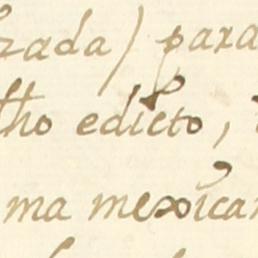 zada / para
lho edicto,
ma mexica